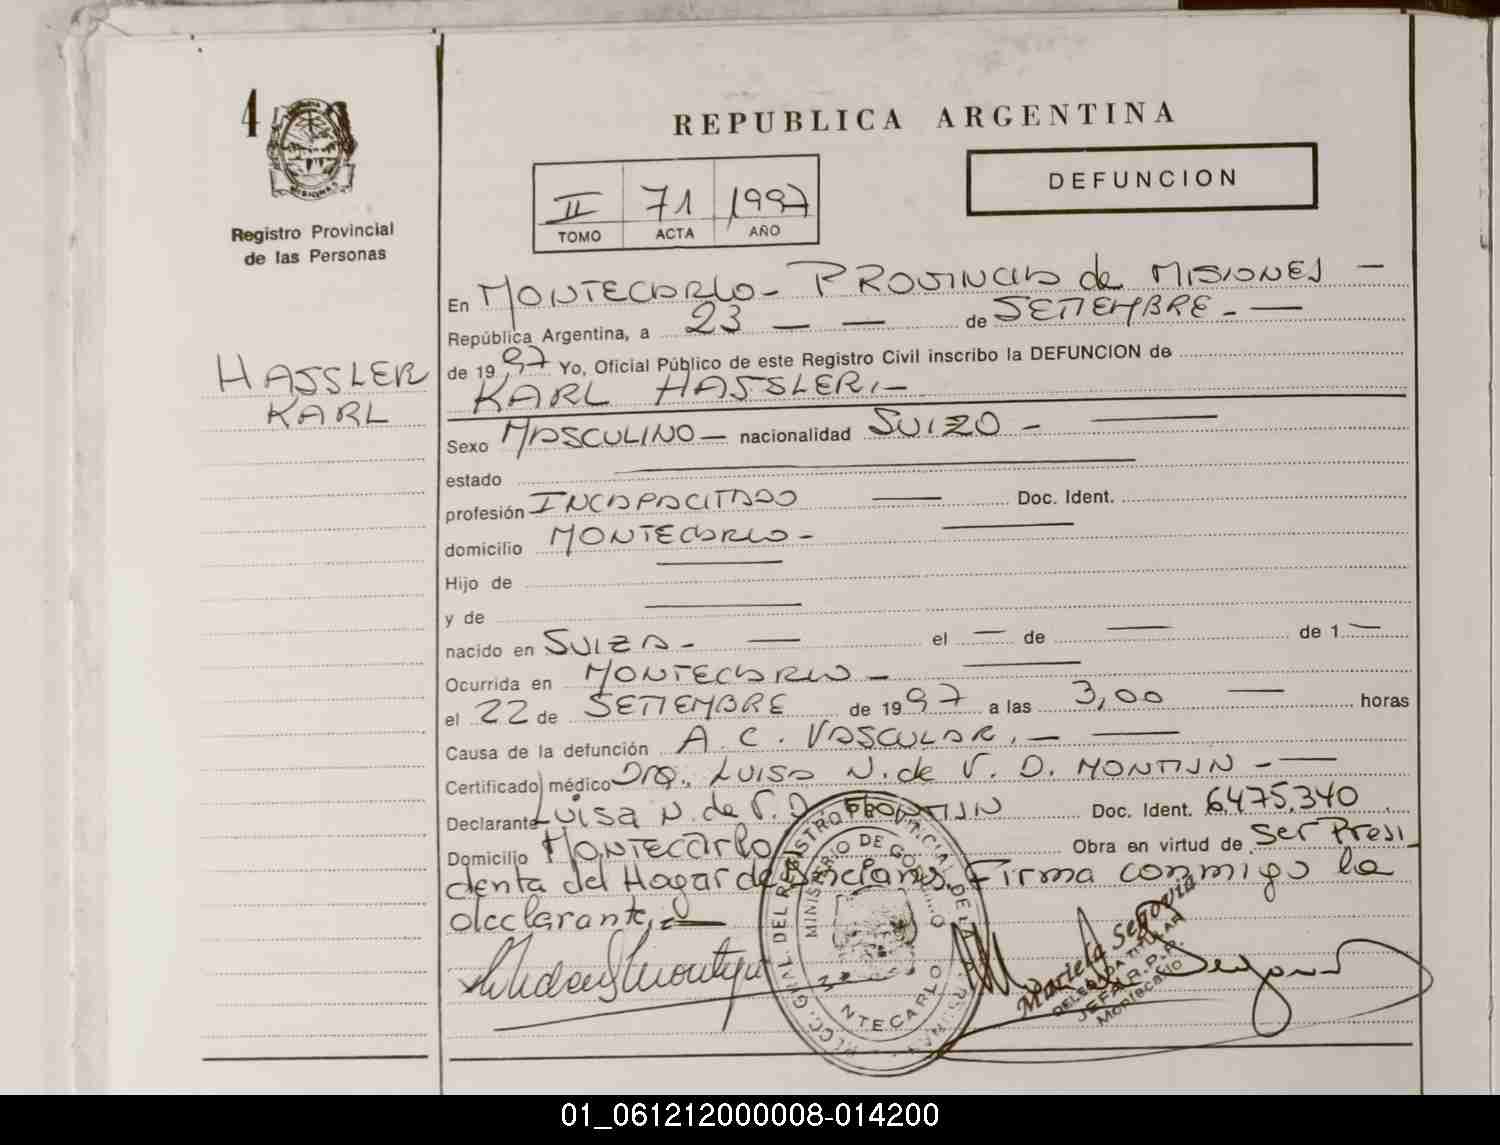 4
Registro Provincial
de las Personas
HASSLER
KARL
REPUBLICA ARGENTINA
II 71 1997
TOMO ACTA AÑO
DEFUNCION
En MONTECARLO - PROVINCIA de MISIONES —
República Argentina, a 23 — — de SETIEMBRE - —
de 1997 Yo, Oficial Público de este Registro Civil inscribo la DEFUNCION de
KARL HASSLER.-
Sexo MASCULINO — nacionalidad SUIZO - —
estado —
profesión INCAPACITADO — Doc. Ident.
domicilio MONTECARLO - —
Hijo de —
y de —
nacido en SUIZA - — el — de — de 1 —
Ocurrida en MONTECARLO - —
el 22 de SETIEMBRE de 1997 a las 3,00 — horas
Causa de la defunción A. C. VASCULAR. - —
Certificado médico Dra. LUISA N. de V. D. MONTIJN - —
Declarante Luisa N. de V. D. MONTIJN Doc. Ident. 6,475,340
Domicilio MONTECARLO Obra en virtud de ser Presi
denta del Hogar de Ancianos. Firma conmigo la
declarante. —
MINISTERIO DE GOBIERNO
NTECARLO
Mariela Segovia
DELEGADA TITULAR
JEFA R.P.P.
Montecarlo
01_061212000008-014200